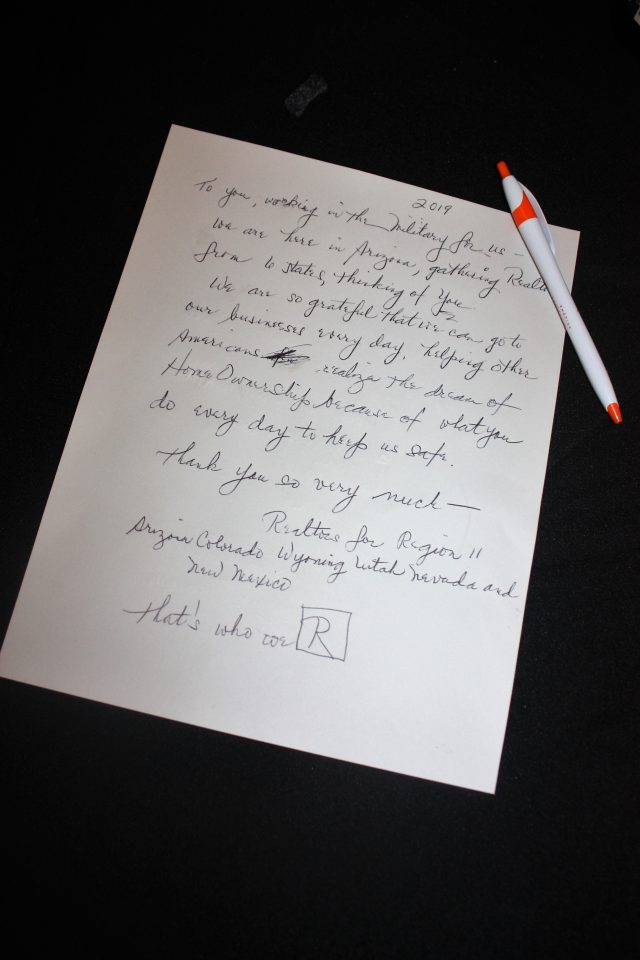 2019
To you, working in the Military for us -
We are here in Arizona, gathering Realto
from 6 states, thinking of You
We are so grateful that we can go to
our businesses every day, helping other
Americans realize the dream of
Home Ownership because of what you
do every day to keep us safe.
Thank you so very much —
Realtors for Region 11
Arizona Colorado Wyoming Utah Nevada and
New Mexico
That's who we R